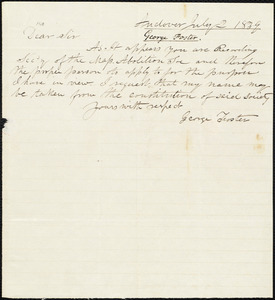 Andover July 2 1839
George Foster.
Dear Sir
As it appears you are Recording
Secty of the Mass Abolition Soc and therefore
the proper person to apply to for the purpose
I have in view I request that my name may
be taken from the constitution of said society
Yours with respect
George Foster